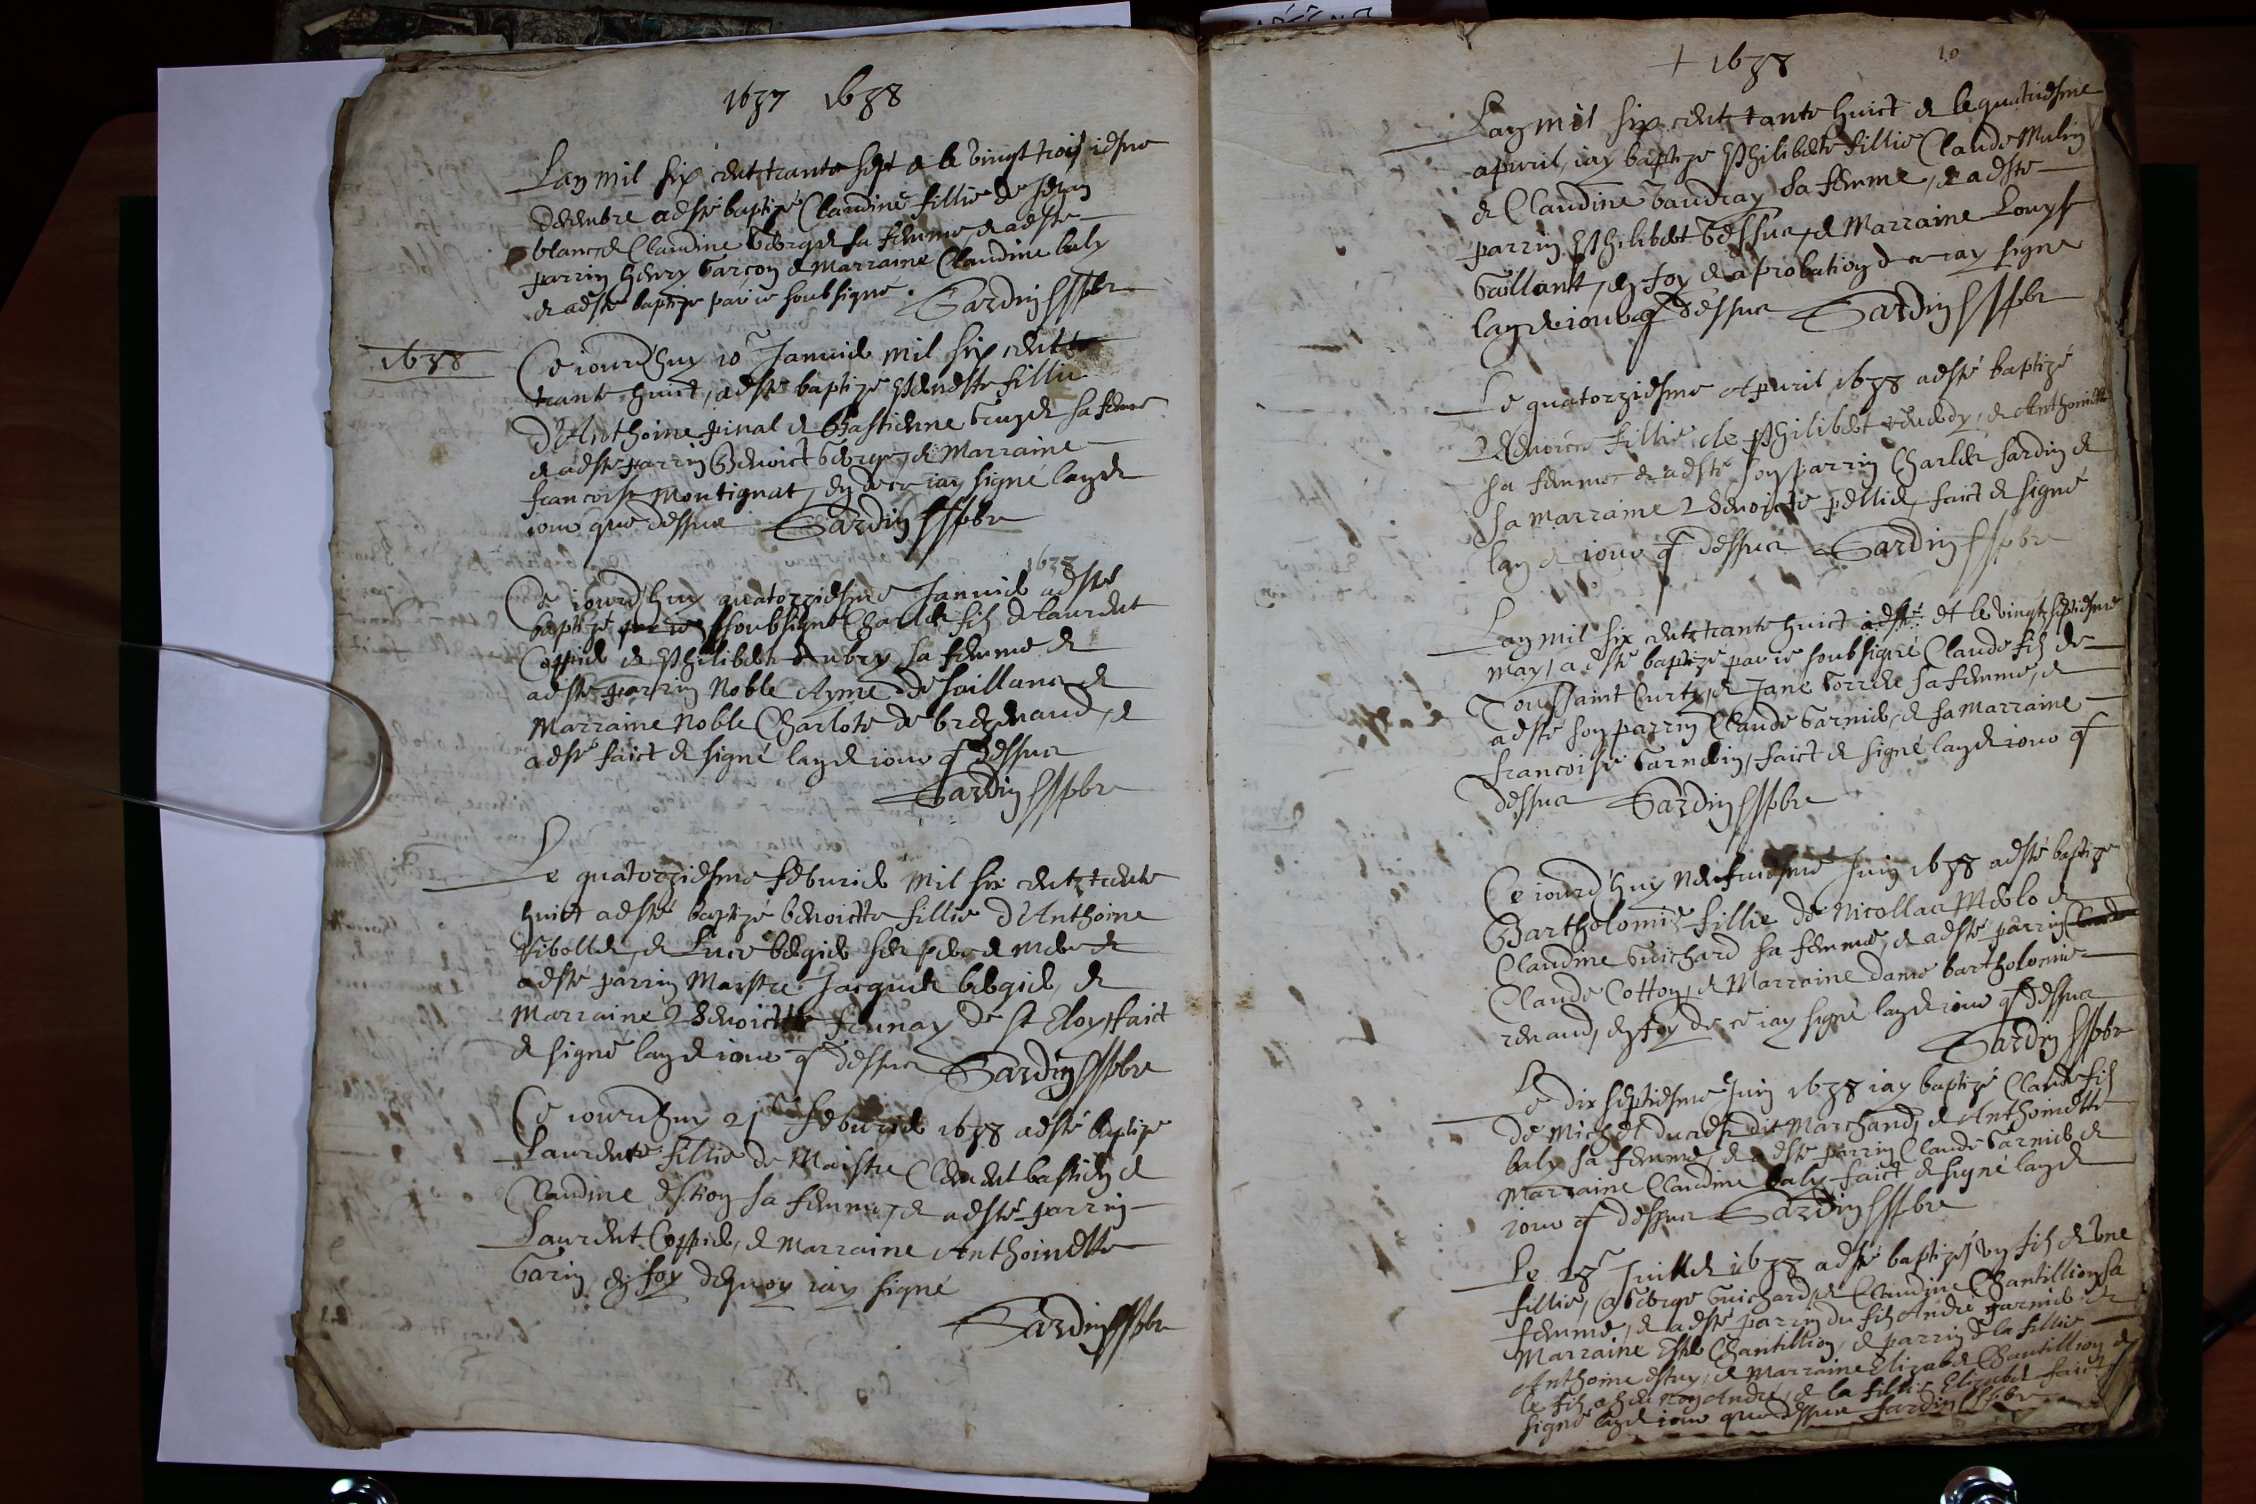 1637 1638
Lan mil six centz trante sept et le vingt troisiesme
decembre a esté baptizé Claudine fillie de Jean
blanc et Claudine George sa femme et a esté
parrin henry Garçon et Marraine Claudine baly
et a esté baptizé par ie soubsigné. Sardin pbre
1638
Ce iourdhuy 10e Januier mil six centz
trante huict, a esté baptizé fillie
d'Anthoine pinal et Bastienne sa femme
et a esté parrin Benoict George, et Marraine
francoise Montignat, en de ce iay signé lan et
iour que dessus Sardin pbre
1638
Ce iourdhuy quatorziesme Januier a esté
baptizé par ie soubsigné Charles filz de Laurent
Coppier et Philiberte Aubry sa femme et
a esté parrin Noble Aymé de saillans et
Marraine Noble Charlote de et
a esté faict et signé lan et iour q dessus
Sardin pbre
Le quatorziesme feburier mil six centz trente
huict a esté baptizé benoictte fillie d'Anthoine
et Luce bergier ses pere et mere et
a esté parrin Maistre Jacques bergier, et
Marraine Benoictte de st Eloy, faict
et signé lan et iour q dessus Sardin pbre
Ce iourdhuy 21e feburier 1638 a esté baptizé
Laurente fillie de Maistre Clement bastien et
Claudine estion sa femme, et a esté parrin
Laurent Coppier, et Marraine Anthoinette
Garin, en foy dequoy iay signé
Sardin pbre
+ 1638 10
Lan mil six centz tante huict et le quatriesme
apuril, iay baptizé Philiberte fillie Claude Mulin
et Claudine Gaudray sa femme, et a esté
parrin Philibert et Marraine Louyse
Gaillant, en foy et aprobation de ce iay signé
lan et iour q dessus Sardin pbre
Le quatorziesme Apuril 1638 a esté baptizé
Benoicte fillie de Philibert et Anthoinette
sa femme et a esté son parrin Charles sardin et
sa marraine Benoicte pellier, faict et signé
lan et iour q dessus Sardin pbre
Lan mil six centz trante huict a esté et le vingt septiesme
may, a esté baptizé par ie soubsigné Claude filz de
Toussaint Curtz, et Jane sa femme, et
a esté son parrin Claude Garnier, et sa Marraine
francoise Garnelin, faict et signé lan et iour q
dessus Sardin pbre
Ce iourdhuy neufuiesme Juin 1638 a esté baptizé
Bartholomie fillie de Nicollas Merlo et
Claudine Guichard sa femme, et a esté parrin Claude
Claude Cotton, et Marraine dame bartholomie
renaud, en foy de ce iay signé lan et iour q dessus
Sardin pbre
Le dix septiesme Juin 1638 iay baptizé Claude filz
de Michel dit Marchand, et Anthoinette
baly sa femme, et a esté parrin Claude Garnier et
Marraine Claudine baly faict et signé lan et
iour q dessus Sardin pbre
Le 28e Juillet 1638 a esté baptizé vn filz et vne
fillie, a George Guichard, et Claudine Chantillion sa
femme, et a esté parrin du filz André garnier et
Marraine Chantillion, et parrin de la fillie
Anthoine et Marraine Elizabet Chantillion et
le filz a heu nom André, et la fillie Elizabet faict et
signé lan et iour que dessus Sardin pbre